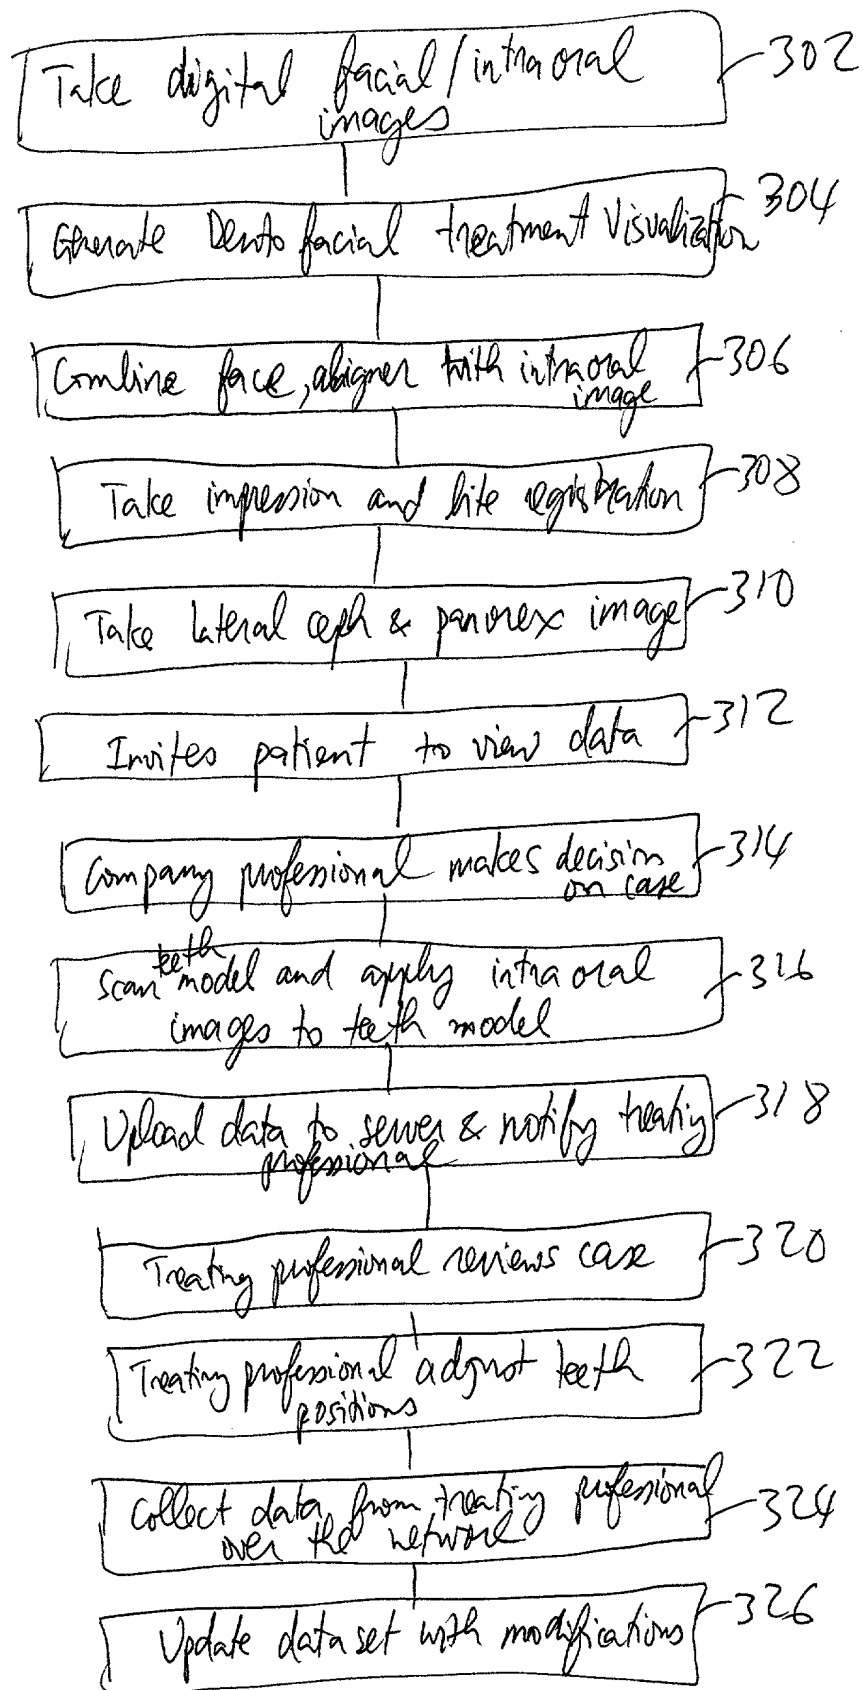 Take digital facial/intraoral 302
images
Generate Dentofacial treatment Visualization 304
Combine face, aligner with intraoral 306
image
Take impression and bite registration 308
Take Lateral ceph & panorex image 310
Invites patient to view data 312
Company professional makes decision 314
on case
Scan teeth model and apply intraoral 316
images to teeth model
Upload data to server & notify treating 318
professional
Treating professional reviews case 320
Treating professional adjust teeth 322
positions
Collect data from treating professional 324
over the network
Update data set with modifications 326